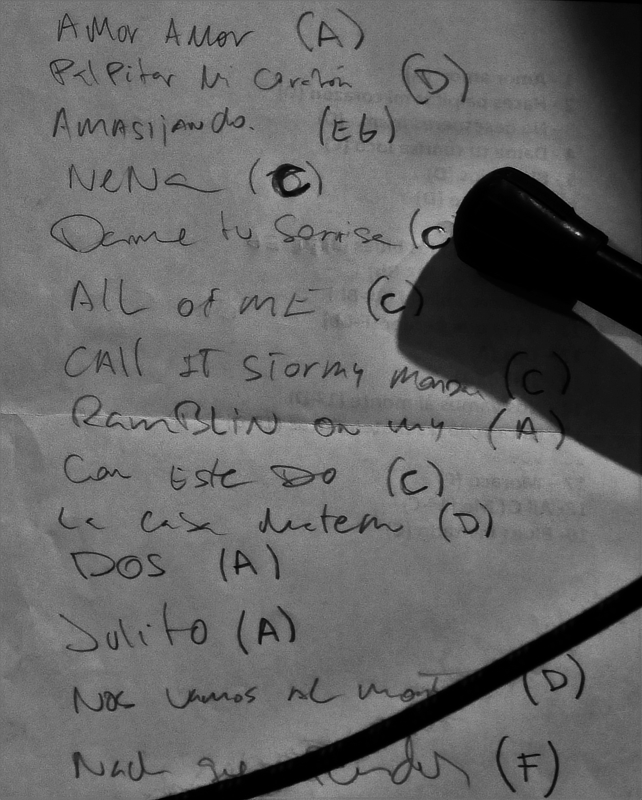 AMor AMor (A)
PalPitar Mi Corazón (D)
AMASIJANdo. (E6)
NeNa (C)
Dame tu Sonrisa (C
ALL of ME (C)
CALL IT STormy (C)
RamBLiN on my (A)
Con Este Do (C)
La casa (D)
DOS (A)
Julito (A)
Nos vamos al (D)
(F)